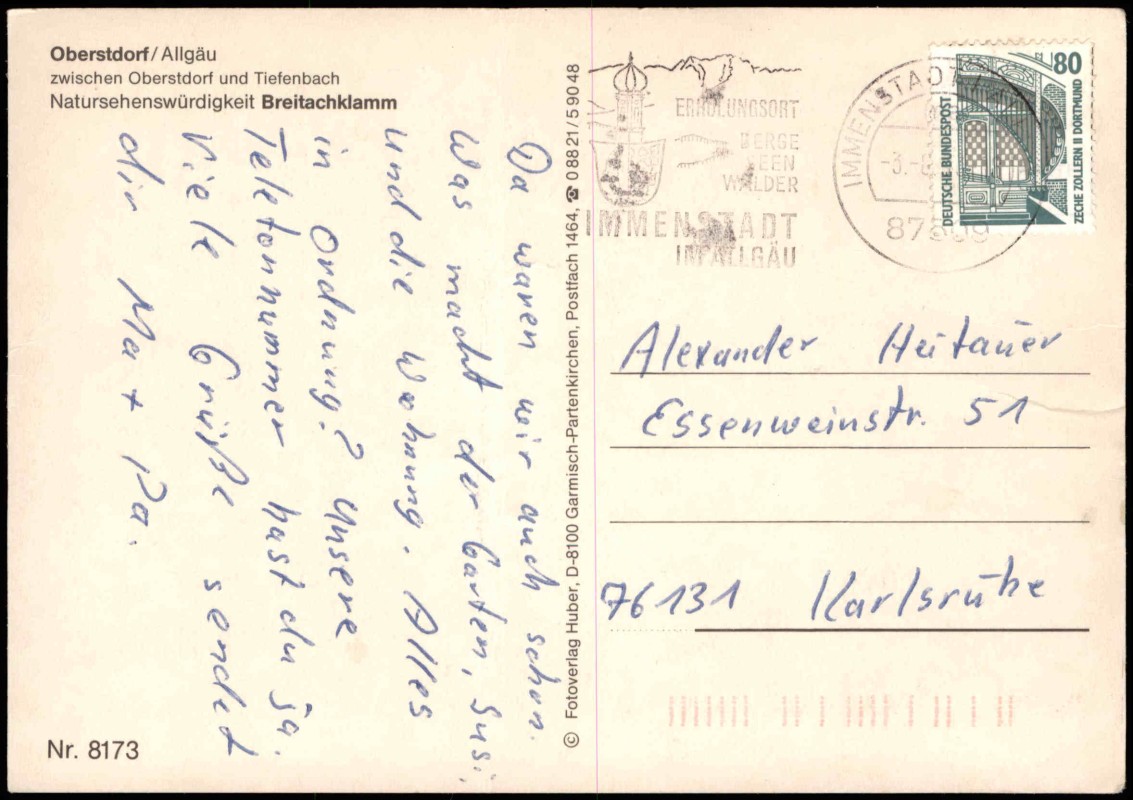 Oberstdorf/Allgäu
zwischen Oberstdorf und Tiefenbach
Natursehenswürdigkeit Breitachklamm
Da waren wir auch schon.
Was macht der Garten, Susi,
und die Wohnung. Alles
in Ordnung? Unsere
Telefonnummer hast du ja.
Viele Grüße sendet
dir Ma + Pa.
Nr. 8173
© Fotoverlag Huber, D-8100 Garmisch-Partenkirchen, Postfach 1464, ☎ 08821/59048
ERHOLUNGSORT
BERGE
SEEN
WÄLDER
IMMENSTADT
IM ALLGÄU
IMMENSTADT
-3.-
80
DEUTSCHE BUNDESPOST
ZECHE ZOLLERN II DORTMUND
Alexander Heitauer
Essenweinstr. 51
76131 Karlsruhe